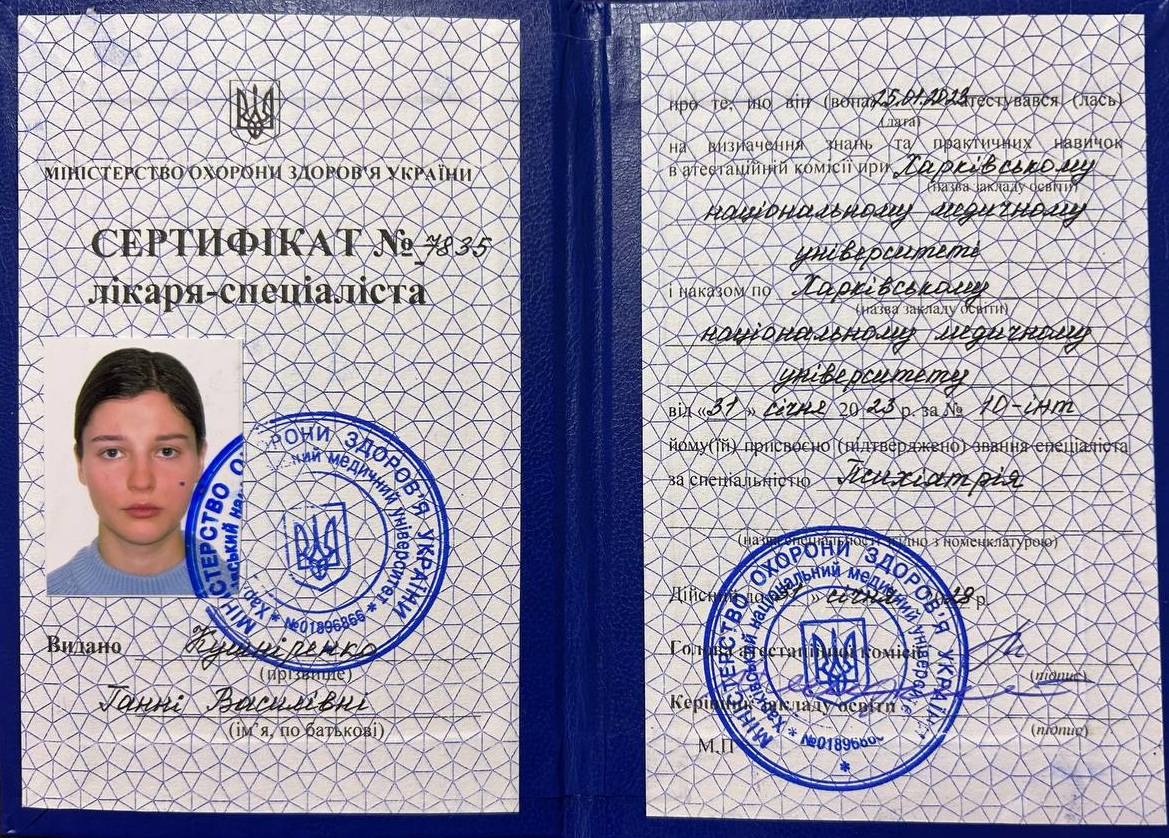 МІНІСТЕРСТВО ОХОРОНИ ЗДОРОВ'Я УКРАЇНИ
СЕРТИФІКАТ № 7835
лікаря-спеціаліста
МІНІСТЕРСТВО ОХОРОНИ ЗДОРОВ'Я УКРАЇНИ
медичний університет * №01896866 *
Видано Кушніренко
(прізвище)
Ганні Василівні
(ім'я, по батькові)
про те, що він (вона) 25.01.2023 атестувався (лась)
(дата)
на визначення знань та практичних навичок
в атестаційній комісії при Харківському
(назва закладу освіти)
національному медичному
університете
і наказом по Харківському
(назва закладу освіти)
національному медичному
університету
від «31» січня 2023 р. за № 10-інт
йому(їй) присвоєно (підтверджено) звання спеціаліста
за спеціальністю Психіатрія
(назва спеціальності згідно з номенклатурою)
Дійсний до «31» січня 2028 р.
Голова атестаційної комісії
(підпис)
Керівник закладу освіти
(підпис)
М.П
МІНІСТЕРСТВО ОХОРОНИ ЗДОРОВ'Я УКРАЇНИ *
Харківський національний медичний університет *